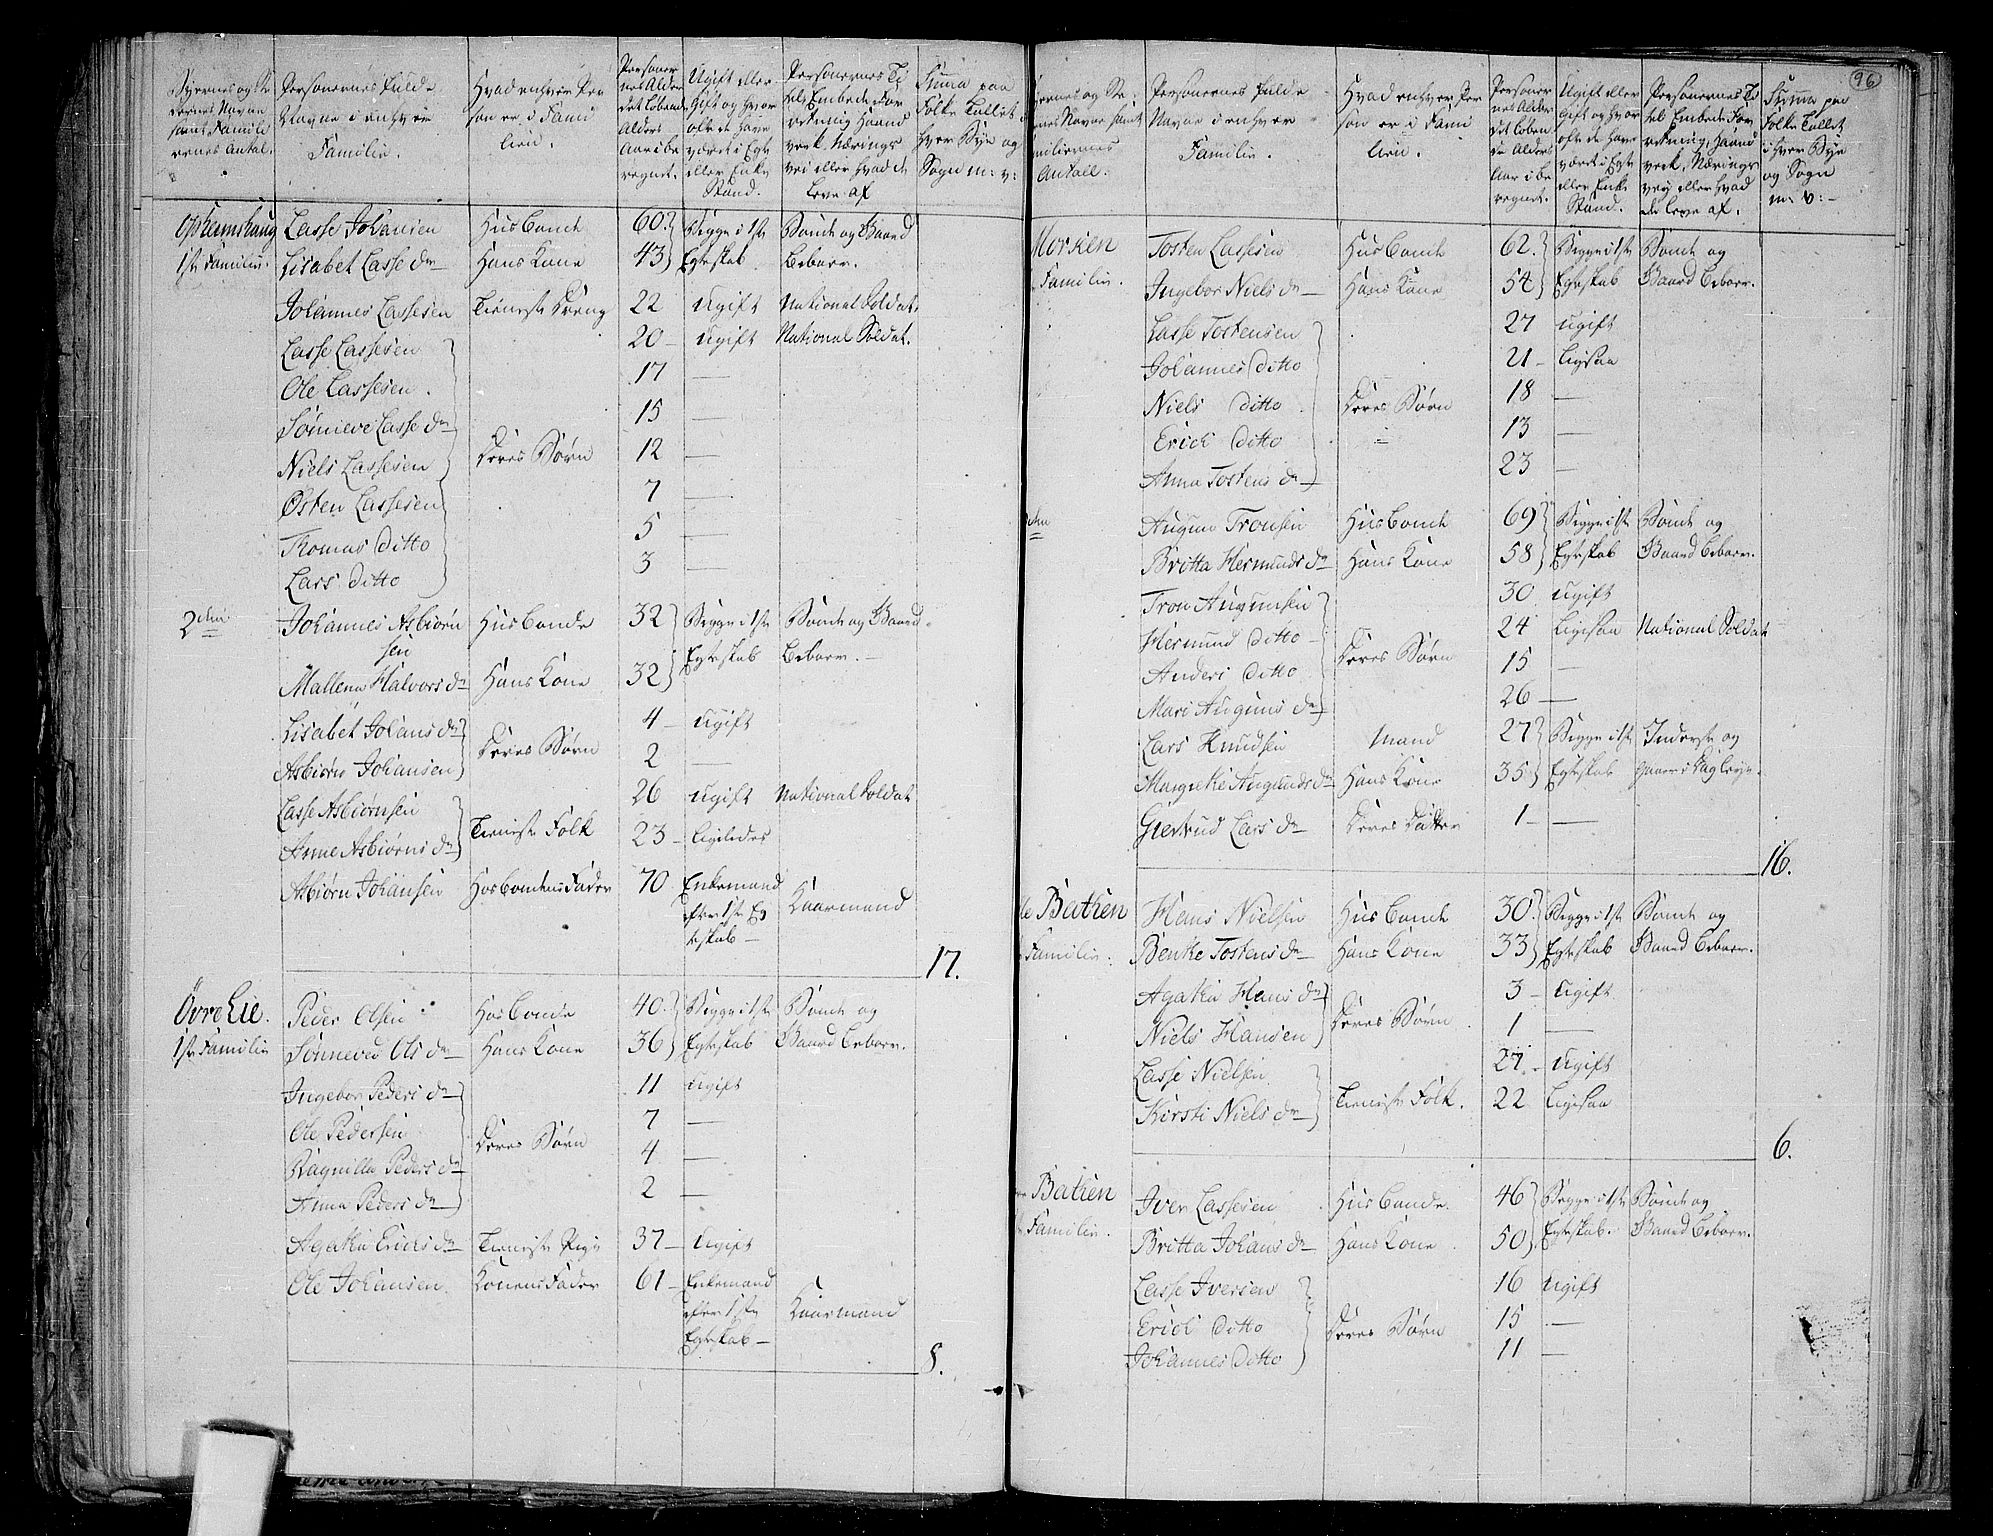 96
Personernes Fulde
Navne i enhver
Familie.
Hvad enhver Per
son er i Fami
lien.
Personer
nes Alder
det løbende
Alders
Aar ibe
regnet.
Ugift eller
Gift og hvor
ofte de have
været i Egte
eller Enke
Stand.
Personernes Ti
tel, Embede, For
retning, Haand
værk, Nærings
vei eller hvad de
leve af
Summa paa
Folke Tallet i
hver Bye og
Sogn m: v:
Opheimshaug Lasse Johansen Huusbonde 60 Begge i 1ste Bonde og Gaard
1ste Familie. Lisabet Lasse dr Hans Kone 43 Egteskab Beboer.
Johannes Lassesen Tieneste Dreng 22 Ugift National Soldat.
Lasse Lassesen 20 Ugift National Soldat.
Ole Lassesen 17 —
Sønneve Lasse dr 15 —
Niels Lassesen Deres Børn 12 —
Østen Lassesen 7 —
Thomas Ditto 5 —
Lars Ditto 3 —
2den Johannes Asbiørn Huusbonde 32 Begge i 1ste Bonde og Gaard
sen Egteskab Beboer.
Mallena Halvors dr Hans Kone 32
Lisabet Johans dr 4 Ugift
Asbiørn Johansen Deres Børn 2 —
Lasse Asbiørnsen 26 Ugift National Soldat
Anne Asbiørns dr Tieneste Folk 23 Ligeledes
Asbiørn Johansen Hosbondens Fader 70 Enkemand
efter 1ste Eg Kaarmand
teskab
17.
Øvre Lie. Peder Olsen Hosbonde 40 Begge i 1ste Bonde og
1ste Familie Sønneved Ols dr Hans Kone 36 Egteskab Gaard Beboer.
Ingebor Peders dr 11 Ugift
Ole Pedersen 7 —
Ragnilla Peders dr Deres Børn 4 —
Anna Peders dr 2 —
Agatha Erichs dr Tieneste Pige 37 Ugift
Ole Johansen Konens Fader 61 Enkemand
efter 1ste Kaarmand
Egteskab
8.
Personernes Fulde
Navne i enhver
Familie.
Hvad enhver Per
son er i Fami
lien.
Personer
nes Alder
det løben
de Alders
Aar ibe
regnet.
Ugift eller
Gift og hvor
ofte de have
været i Egte
eller Enke
Stand.
Personernes Ti
tel, Embede, For
retning, Haand
værk, Nærings
vey eller hvad
de leve af.
Summa paa
Folke Tallet
i hver Bye
og Sogn
m: v:
Morken Tosten Lassesen Huusbonde 62 Begge i 1ste Bonde og
Familie. Ingebor Niels dr Hans Kone 54 Egteskab Gaard Beboer.
Lasse Tostensen 27 Ugift
Johannes Ditto 21 Ligesaa
Niels Ditto Deres Børn 18 —
Erich Ditto 13 —
Anna Tostens dr 23 —
den Augun Tronsen Huusbonde 69 Begge i 1ste Bonde og
Britta Hermunds dr Hans Kone 58 Egteskab Gaard Beboer.
Tron Augunsen 30 Ugift
Hermund Ditto 24 Ligesaa National Soldat
Anders Ditto Deres Børn 15 —
Mari Auguns dr 26 —
Lars Knudsen Mand 27 Begge i 1ste Inderste og
Margrethe Auguns dr Hans Kone 35 Egteskab
Giertrud Lars dr Deres Datter 1 —
16.
Batien Hans Nielsen Huusbonde 30 Begge i 1ste Bonde og
Familie. Benthe Tostens dr Hans Kone 33 Egteskab Gaard Beboer.
Agatha Hans dr 3 Ugift
Niels Hansen Deres Børn 1 —
Lasse Nielsen 27 Ugift
Kirsti Niels dr Tieneste Folk. 22 Ligesaa
6.
Batien Iver Lassesen Huusbonde. 46 Begge i 1ste Bonde og
Familie. Britta Johans dr Hans Kone 50 Egteskab Gaard Beboer.
Lasse Iversen 16 Ugift
Erich Ditto Deres Børn 15 —
Johannes Ditto 11 —